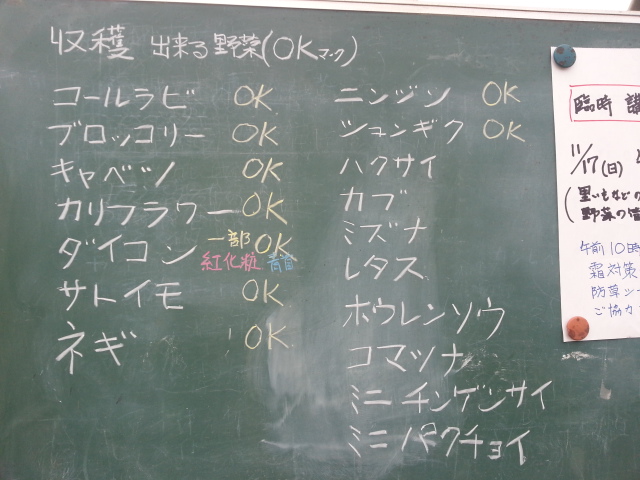 収穫 出来る野菜(OKマーク)
コールラビ OK
ブロッコリー OK
キャベツ OK
カリフラワー OK
ダイコン 一部OK
紅化粧 青首
サトイモ OK
ネギ OK
ニンジン OK
シュンギク OK
ハクサイ
カブ
ミズナ
レタス
ホウレンソウ
コマツナ
ミニチンゲンサイ
ミニパクチョイ
臨時 講
11/17(日)
(里いもなどの
野菜の
午前10時
霜対策
防草シー
ご協力